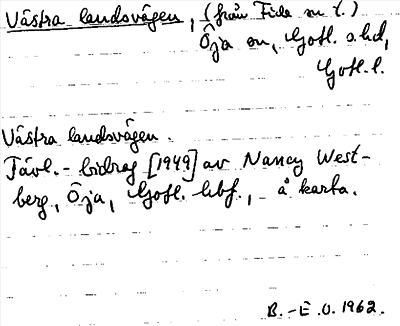 Västra landsvägen, (från Fide m. l.)
Öja sn, Gotl. s. hd,
Gotl. l.
Västra landsvägen.
Tävl.-bidrag [1949] av Nancy West-
berg, Öja, Gotl. hbf., å karta.
B.-E.O. 1962.